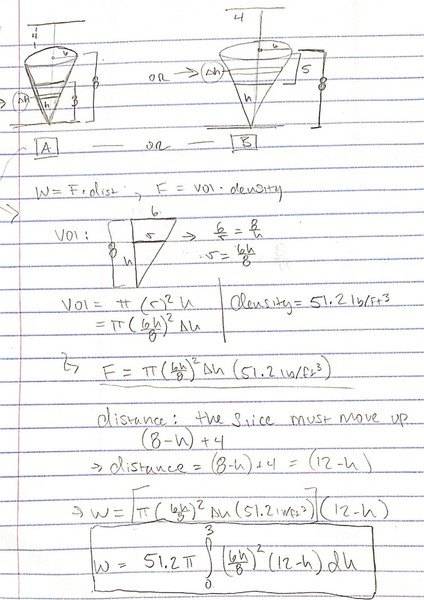 4
4
6
6
Δh
h
3
8
OR →
Δh
h
5
8
A — OR — B
W = F·dist , F = vol·density
Vol:
6
8
r
h
→ 6/r = 8/h
r = 6h/8
Vol = π (r)² h
= π (6h/8)² Δh
density = 51.2 lb/ft³
↳ F = π (6h/8)² Δh (51.2 lb/ft³)
distance: the slice must move up
(8-h) + 4
⇒ distance = (8-h)+4 = (12-h)
⇒ W = [π (6h/8)² Δh (51.2 lb/ft³)] (12-h)
W = 51.2 π ∫₀³ (6h/8)² (12-h) dh